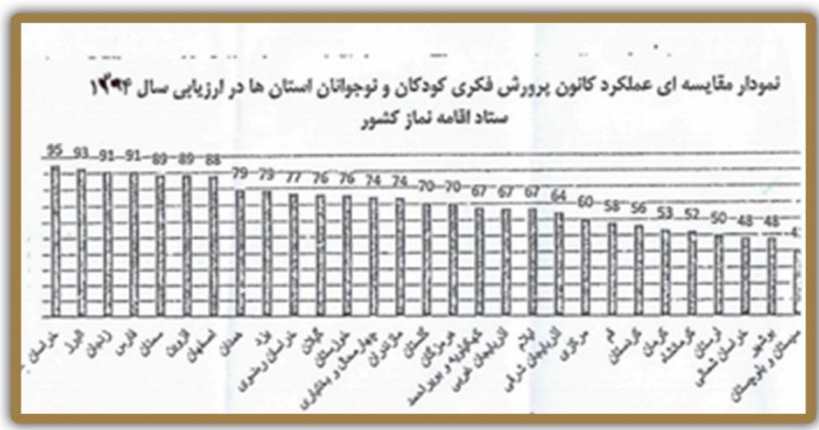 نمودار مقایسه ای عملکرد کانون پرورش فکری کودکان و نوجوانان استان ها در ارزیابی سال ۱۳۹۴
ستاد اقامه نماز کشور
95 93 91 91 89 89 88 79 79 77 76 76 74 74 70 70 67 67 67 64 60 58 56 53 52 50 48 48
خراسان
البرز
زنجان
فارس
سمنان
قزوین
اصفهان
همدان
یزد
خراسان رضوی
گیلان
خوزستان
چهارمحال و بختیاری
مازندران
گلستان
هرمزگان
کهکیلویه و بویراحمد
آذربایجان غربی
ایلام
آذربایجان شرقی
مرکزی
قم
کردستان
کرمان
کرمانشاه
لرستان
خراسان شمالی
بوشهر
سیستان و بلوچستان